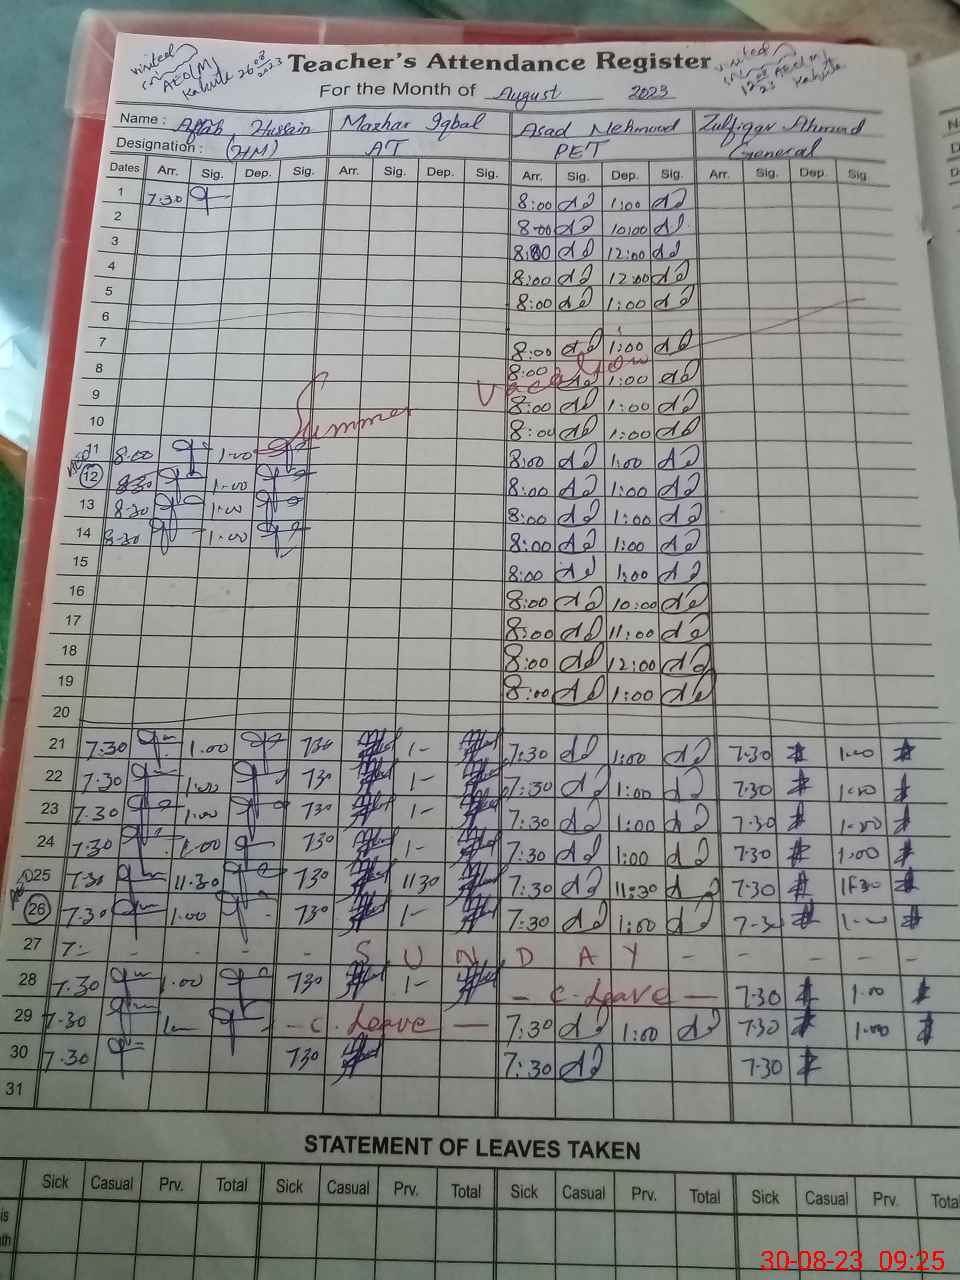 visited
AEO(M)
Kahuta 26 08 2023
Teacher's Attendance Register
visited
12 08 23 AEO(M)
Kahuta
For the Month of August 2023
Name : Aftab Hussain Mazhar Iqbal Asad Mehmood Zulfiqar Ahmad
Designation : (HM) AT PET General
Dates Arr. Sig. Dep. Sig. Arr. Sig. Dep. Sig. Arr. Sig. Dep. Sig. Arr. Sig. Dep. Sig.
1 7.30 8:00 1:00
2 8:00 10:00
3 8:00 12:00
4 8:00 12:00
5 8:00 1:00
6
7 8:00 1:00
8 8:00 1:00
9 8:00 1:00
10 8:00 1:00
Summer Vacation
11 8:00 1:00 8:00 1:00
12 8:30 1:00 8:00 1:00
13 8:30 1:00 8:00 1:00
14 8:30 1:00 8:00 1:00
15 8:00 1:00
16 8:00 10:00
17 8:00 11:00
18 8:00 12:00
19 8:00 1:00
20
21 7.30 1.00 730 1- 7:30 1:00 7.30 1.00
22 7.30 1.00 730 1- 7:30 1:00 7.30 1.00
23 7.30 1.00 730 1- 7:30 1:00 7.30 1.00
24 7.30 1.00 730 1- 7:30 1:00 7.30 1.00
25 7.30 11.30 730 1130 7:30 11:30 7.30 11:30
26 7.30 1.00 730 1- 7:30 1:00 7.30 1.00
27 7:- - - - - S U N D A Y - - - -
28 7.30 1.00 730 1- - C. Leave - 7.30 1.00
29 7.30 1- - C. Leave - 7:30 1:00 7.30 1.00
30 7.30 730 7:30 7.30
31
STATEMENT OF LEAVES TAKEN
Sick Casual Prv. Total Sick Casual Prv. Total Sick Casual Prv. Total Sick Casual Prv. Total
30-08-23 09:25